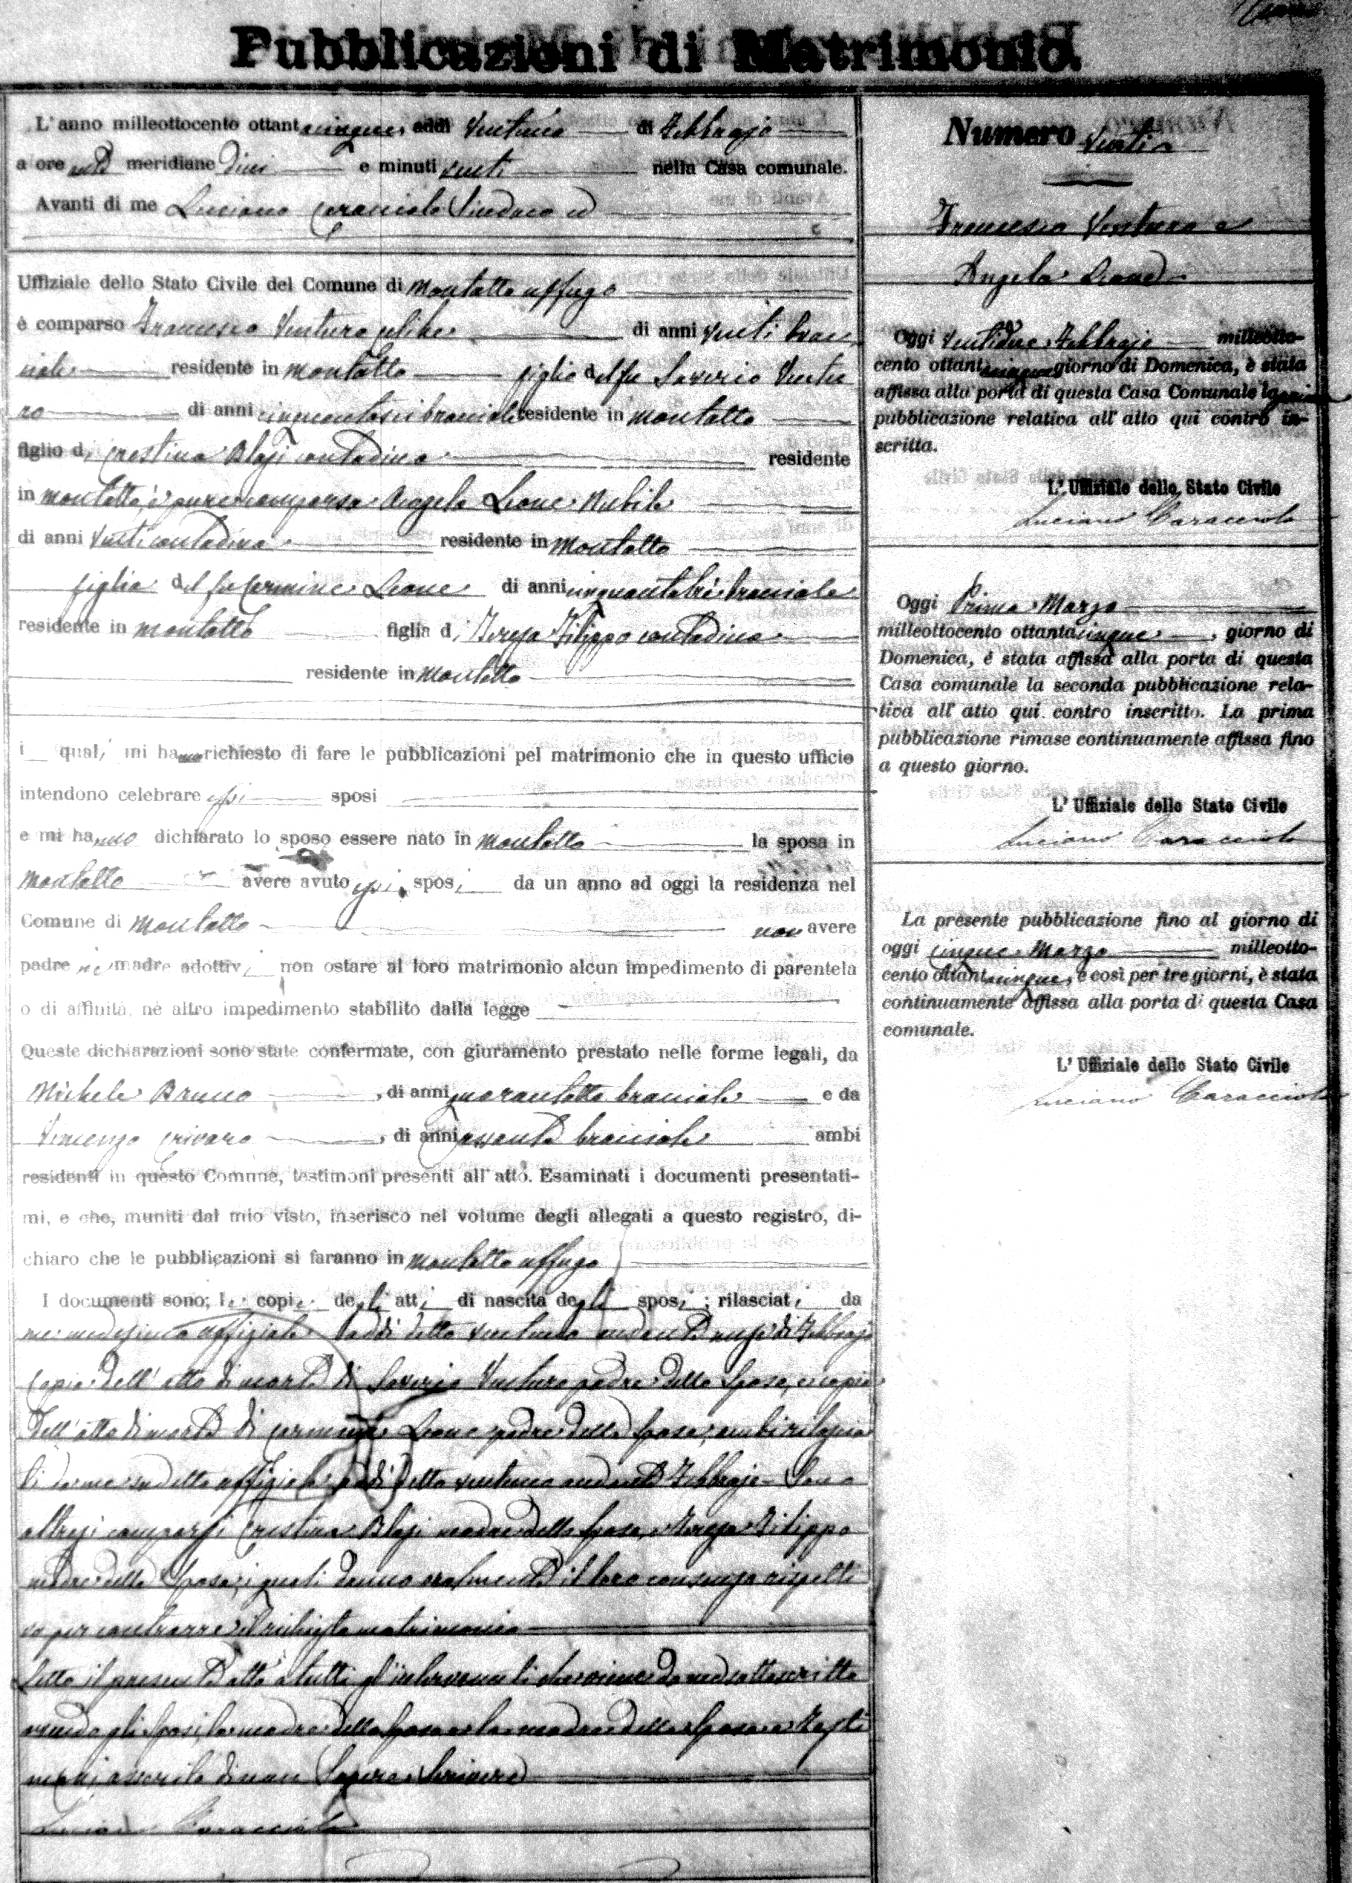 Pubblicazioni di Matrimonio.
L'anno milleottocento ottantacinque, addì Ventuno di Febbrajo
a ore anti meridiane dieci e minuti venti nella Casa comunale.
Avanti di me Luciano Caracciolo Sindaco ed
Uffiziale dello Stato Civile del Comune di Montalto Uffugo
è comparso Francesco Ventura celibe di anni venti brac
ciale residente in Montalto figlio del fu Saverio Ventu
ra di anni cinquantasei bracciale residente in Montalto
figlio di Crestina Blasi contadina residente
in Montalto, è pure comparsa Angela Leone Nubile
di anni Venti contadina residente in Montalto
figlia del fu Carmine Leone di anni cinquantatrè bracciale
residente in Montalto figlia di Teresa Filippo contadina
residente in Montalto
i quali mi hanno richiesto di fare le pubblicazioni pel matrimonio che in questo ufficio
intendono celebrare essi sposi
e mi hanno dichiarato lo sposo essere nato in Montalto la sposa in
Montalto avere avuto essi sposi da un anno ad oggi la residenza nel
Comune di Montalto non avere
padre nè madre adottivi non ostare al loro matrimonio alcun impedimento di parentela
o di affinità, nè altro impedimento stabilito dalla legge
Queste dichiarazioni sono state confermate, con giuramento prestato nelle forme legali, da
Michele Bruno, di anni quarantotto bracciale e da
Vincenzo Crivaro, di anni sessanta bracciale ambi
residenti in questo Comune, testimoni presenti all'atto. Esaminati i documenti presentati-
mi, e che, muniti dal mio visto, inserisco nel volume degli allegati a questo registro, di-
chiaro che le pubblicazioni si faranno in Montalto Uffugo
I documenti sono; le copie degli atti di nascita degli sposi; rilasciati da
me medesimo uffiziale addì detto ventuno andante mese di Febbrajo
copia dell'atto di morte di Saverio Ventura padre dello Sposo, e copia
dell'atto di morte di Carmine Leone padre della Sposa, ambi rilascia
ti da me sudetto uffiziale addì detto ventuno andante Febbrajo. Sono
altresì comparsi Crestina Blasi madre dello Sposo, e Teresa Filippo
madre della Sposa, i quali danno oralmente il loro consenso rispetti
vo per contrarre il richiesto matrimonio
Letto il presente atto a tutti gl'intervenuti che viene da me sottoscritto
avendo gli Sposi, la madre dello Sposo e la madre della Sposa e Testi
moni asserito di non Sapere Scrivere
Luciano Caracciolo
Numero Venti
Francesco Ventura e
Angela Leone
Oggi ventidue Febbrajo milleotto-
cento ottantacinque giorno di Domenica, è stata
affissa alla porta di questa Casa Comunale la prima
pubblicazione relativa all'atto qui contro in-
scritta.
L'Uffiziale dello Stato Civile
Luciano Caracciolo
Oggi Primo Marzo
milleottocento ottantacinque, giorno di
Domenica, è stata affissa alla porta di questa
Casa comunale la seconda pubblicazione rela-
tiva all'atto qui contro inscritto. La prima
pubblicazione rimase continuamente affissa fino
a questo giorno.
L'Uffiziale dello Stato Civile
Luciano Caracciolo
La presente pubblicazione fino al giorno di
oggi cinque Marzo milleotto-
cento ottantacinque, e così per tre giorni, è stata
continuamente affissa alla porta di questa Casa
comunale.
L'Uffiziale dello Stato Civile
Luciano Caracciolo